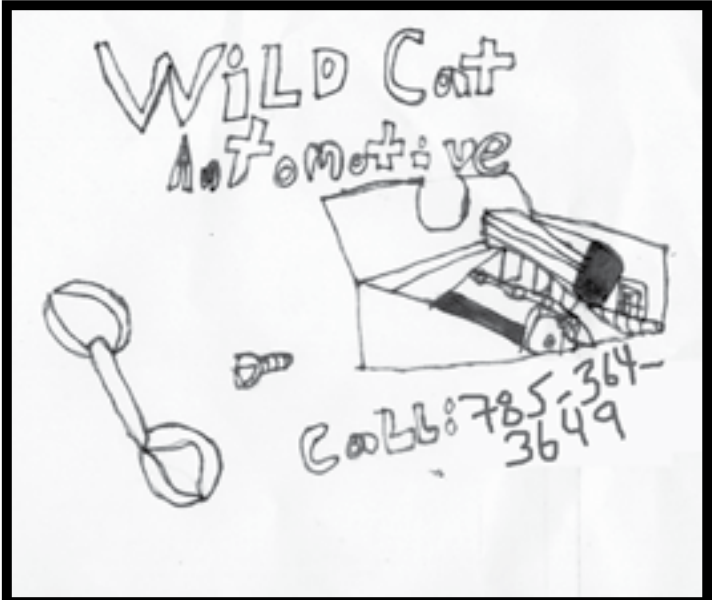 WiLD Cat
AuTomotive
CaLL: 785-364-
3649